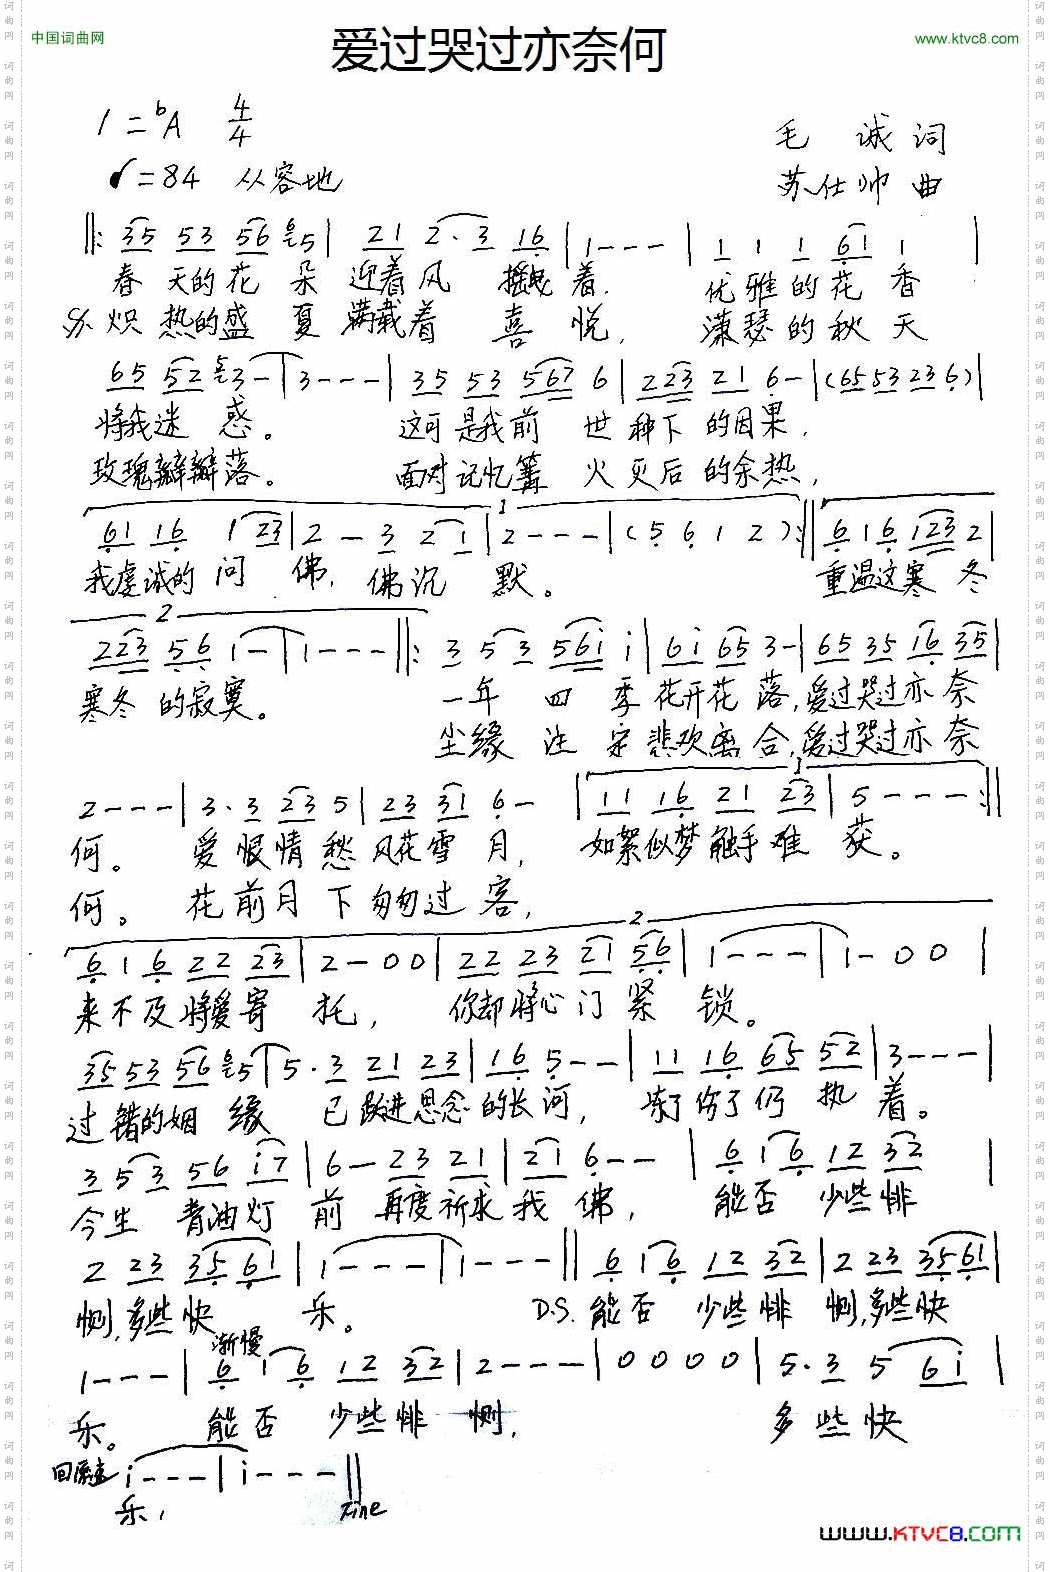 中国词曲网
www.ktvc8.com
爱过哭过亦奈何
1=bA 4/4
毛 诚 词
=84 从容地
苏仕帅 曲
‖: 35 53 56 6 5 | 21 2· 3 16 | 1 - - - | 1 1 1 61 1 |
春天的花朵 迎着风 摇曳着. 优雅的花香
炽热的盛夏 满载着喜悦, 潇瑟的秋天
65 52 5 3 - | 3 - - - | 35 53 567 6 | 223 21 6 - | (65 53 23 6) |
将我迷惑。 这可是我前世种下的因果,
玫瑰瓣瓣落。 面对记忆篝火灭后的余热,
1
61 16 1 23 | 2 - 3 2 1 | 2 - - - | (5 6 1 2) :‖ 6 1 6 123 2 |
我虔诚的问佛, 佛沉默。 重温这寒冬
2
223 56 1 - | 1 - - - ‖: 3 5 3 561 1 | 61 65 3 - | 65 35 16 35 |
寒冬的寂寞。 一年四季花开花落,爱过哭过亦奈
尘缘注定悲欢离合,爱过哭过亦奈
1
2 - - - | 3· 3 23 5 | 23 31 6 - | 11 16 21 23 | 5 - - - :‖
何。 爱恨情愁风花雪月, 如絮似梦触手难获。
何。 花前月下匆匆过客,
2
6 1 6 22 23 | 2 - 0 0 | 22 23 21 56 | 1 - - - | 1 - 0 0 |
来不及将爱寄托, 你却将心门紧锁。
35 53 56 6 5 | 5· 3 21 23 | 1 6 5 - - | 11 16 65 52 | 3 - - - |
过错的姻缘 已跃进思念的长河, 冻了伤了仍执着。
3 5 3 56 17 | 6 - 23 21 | 21 6 - - | 6 1 6 12 32 |
今生青油灯前再度祈求我佛, 能否少些悱
2 23 35 61 | 1 - - - | 1 - - - ‖ 6 1 6 12 32 | 2 23 35 61 |
恻,多些快乐。 D.S. 能否少些悱恻,多些快
渐慢
1 - - - | 6 1 6 12 32 | 2 - - - | 0 0 0 0 | 5· 3 5 6 1 |
乐。 能否少些悱恻, 多些快
回原速 1 - - - | 1 - - - ‖
乐, Fine
www.KTVC8.com